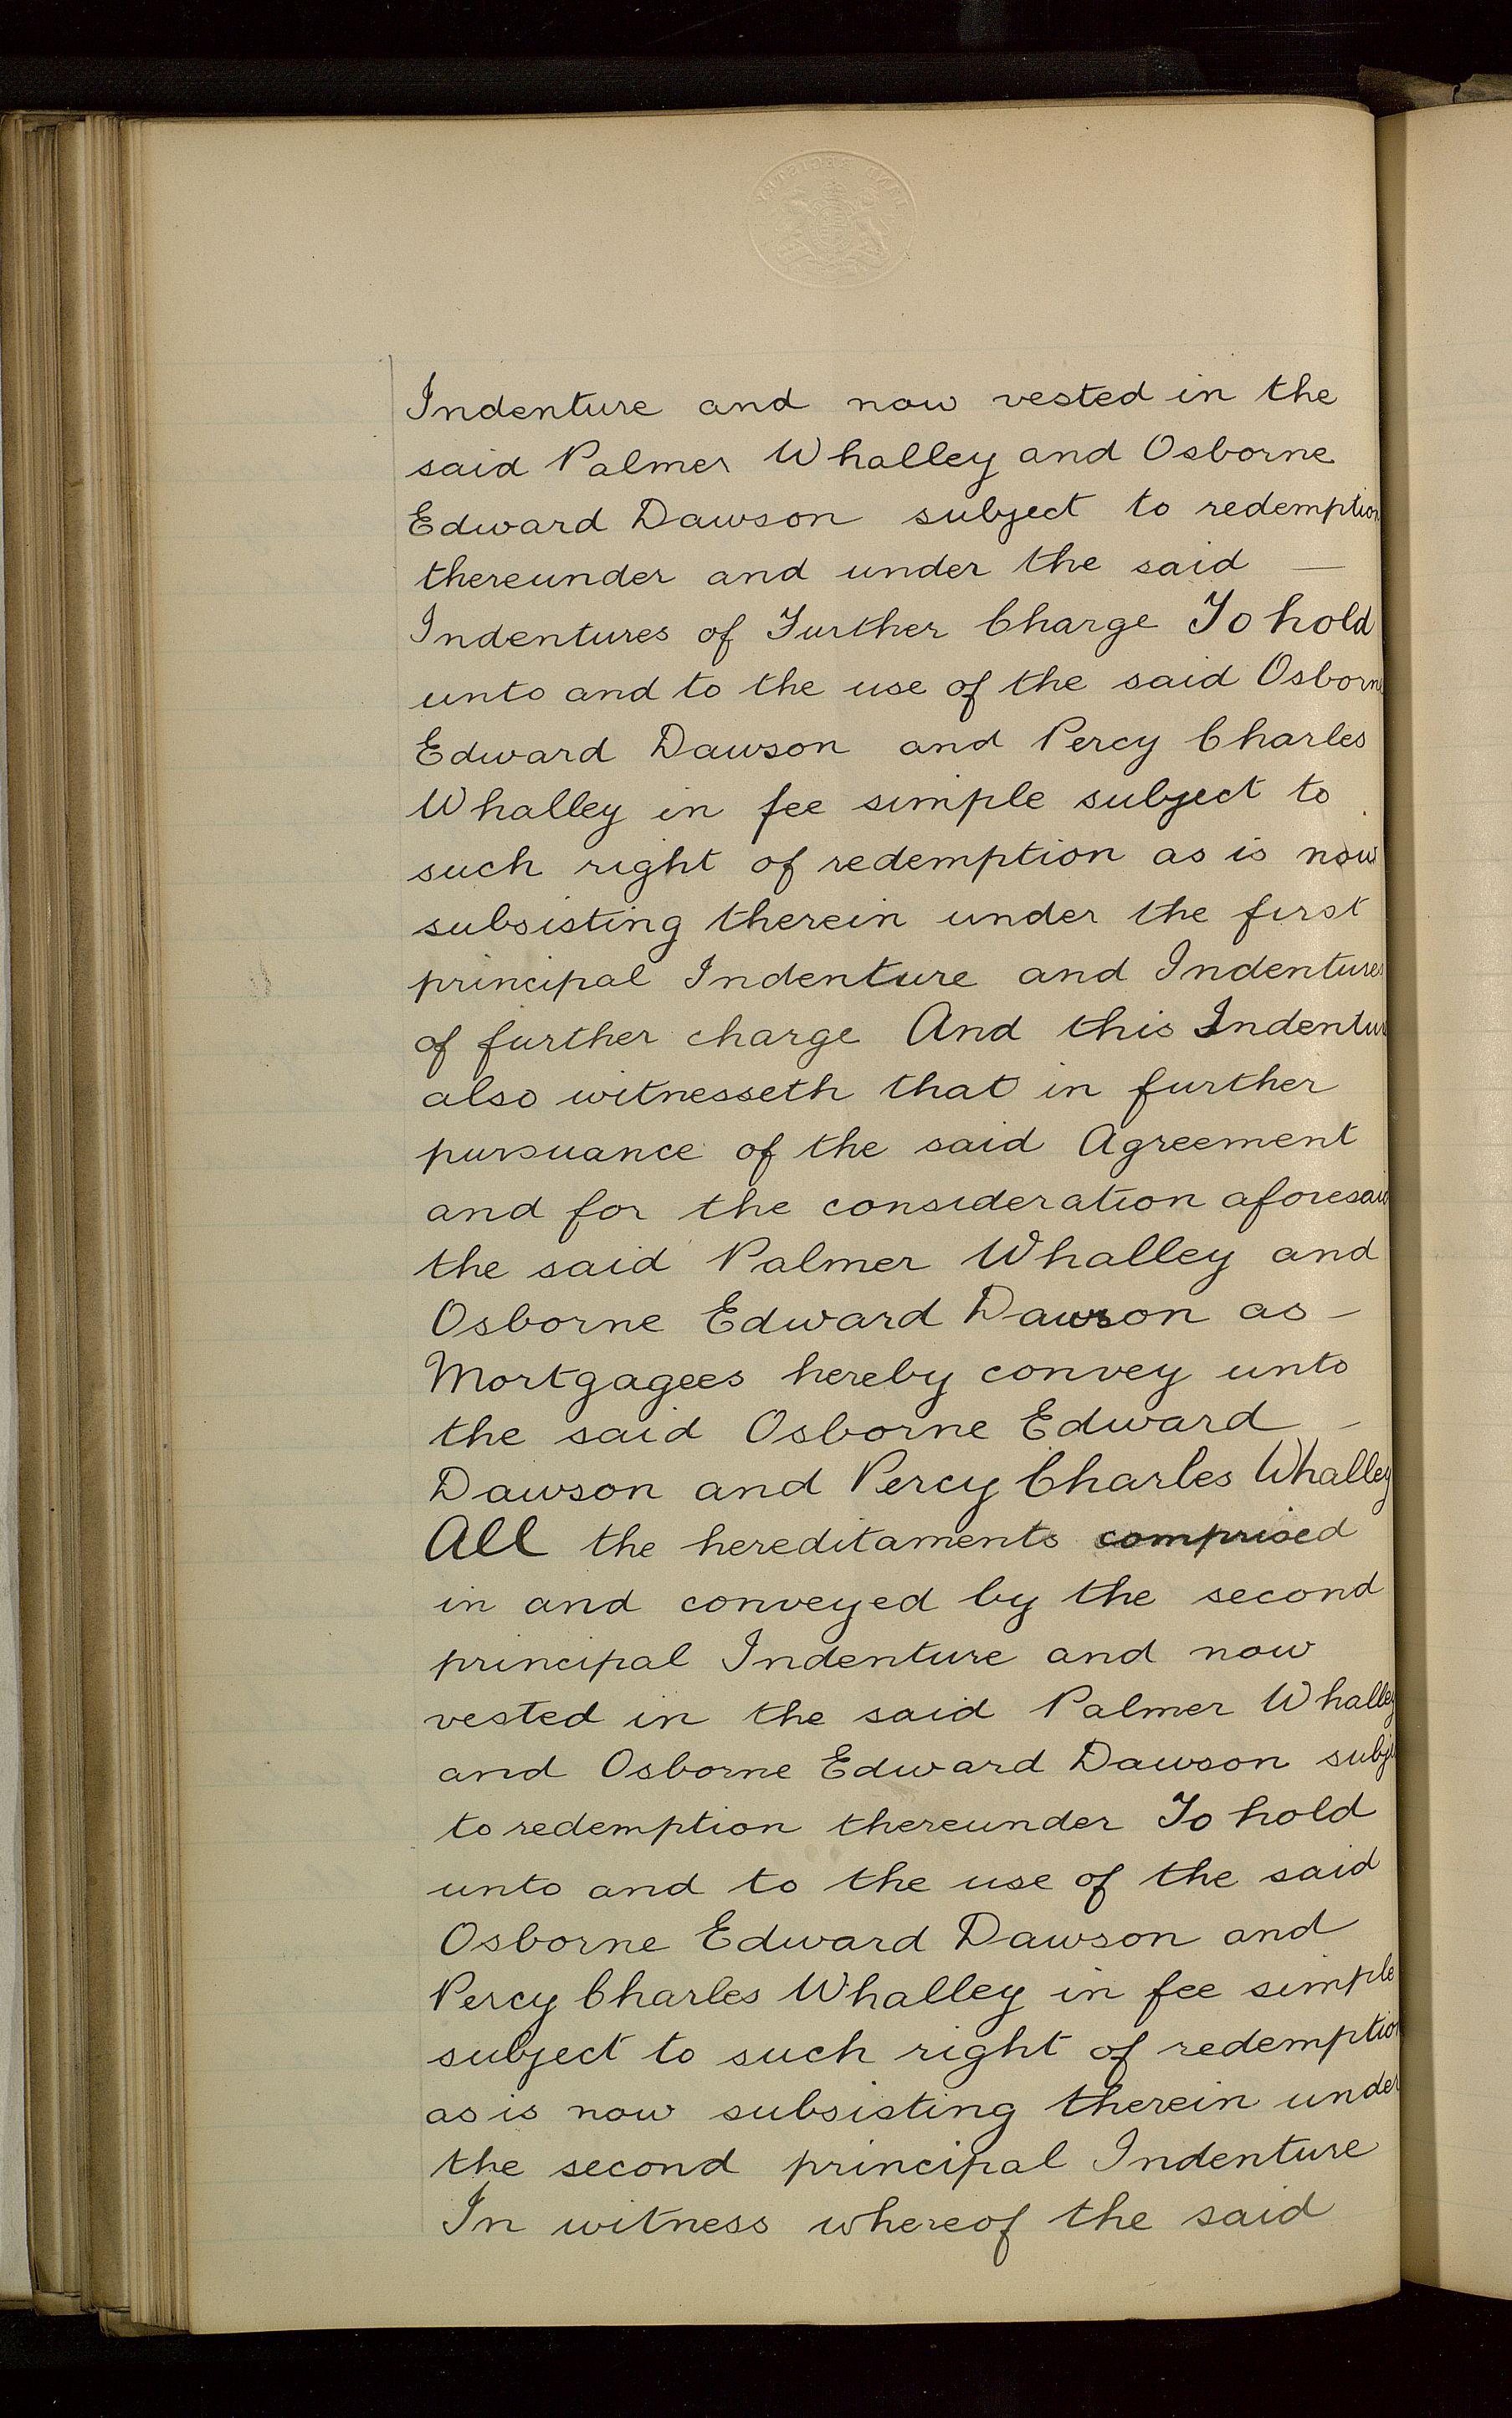 Indenture and now vested in the
said Palmer Whalley and Osborne
Edward Dawson subject to redemption
thereunder and under the said —
Indentures of Further Charge To hold
unto and to the use of the said Osborne
Edward Dawson and Percy Charles
Whalley in fee simple subject to
such right of redemption as is now
subsisting therein under the first
principal Indenture and Indentures
of further charge And this Indentu
also witnesseth that in further
pursuance of the said Agreement
and for the consideration aforesaid
the said Palmer Whalley and
Osborne Edward Dawson as –
Mortgagees hereby convey unto
the said Osborne Edward –
Dawson and Percy Charles Whalley
All the hereditaments comprised
in and conveyed by the second
principal Indenture and now
vested in the said Palmer Whalley
and Osborne Edward Dawson subj
to redemption thereunder To hold
unto and to the use of the said
Osborne Edward Dawson and
Percy Charles Whalley in fee simple
subject to such right of redemption
as is now subsisting therein under
the second principal Indenture
In witness whereof the said